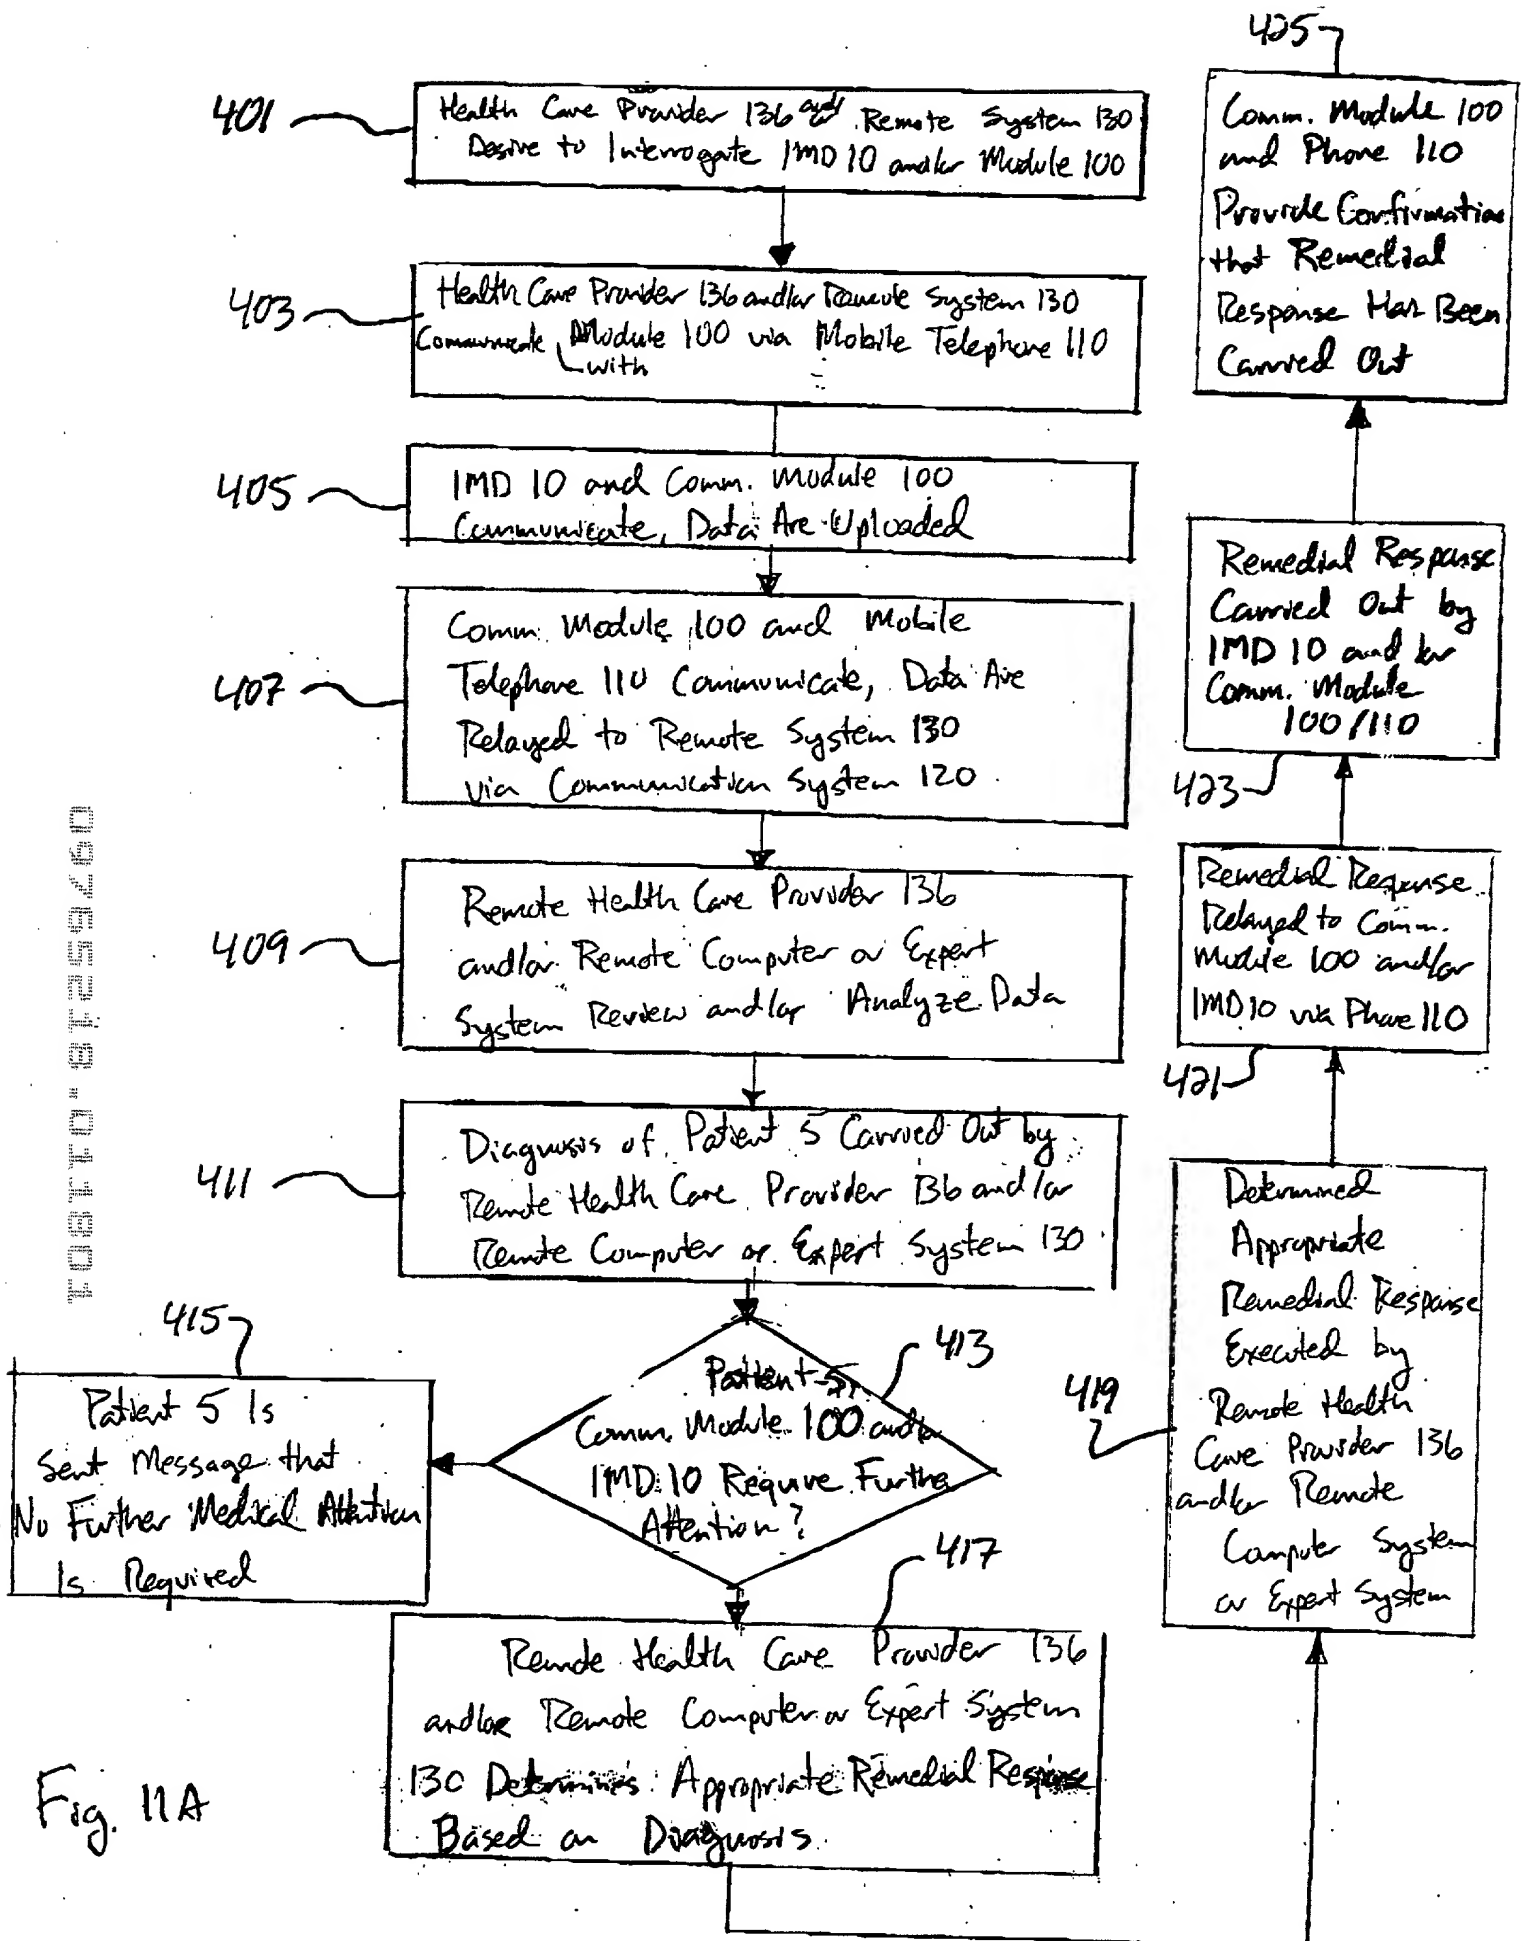 401
Health Care Provider 136 and/or Remote System 130
Desire to Interrogate IMD 10 and/or Module 100
403
Health Care Provider 136 and/or Remote System 130
Communicate with Module 100 via Mobile Telephone 110
405
IMD 10 and Comm. Module 100
Communicate, Data Are Uploaded
407
Comm. Module 100 and Mobile
Telephone 110 Communicate, Data Are
Relayed to Remote System 130
via Communication System 120
409
Remote Health Care Provider 136
and/or Remote Computer or Expert
System Review and/or Analyze Data
411
Diagnosis of Patient 5 Carried Out by
Remote Health Care Provider 136 and/or
Remote Computer or Expert System 130
413
Patient 5,
Comm. Module 100 and/or
IMD 10 Require Further
Attention?
415
Patient 5 Is
Sent Message that
No Further Medical Attention
Is Required
417
Remote Health Care Provider 136
and/or Remote Computer or Expert System
130 Determines Appropriate Remedial Response
Based on Diagnosis
419
Determined
Appropriate
Remedial Response
Executed by
Remote Health
Care Provider 136
and/or Remote
Computer System
or Expert System
421
Remedial Response
Relayed to Comm.
Module 100 and/or
IMD 10 via Phone 110
423
Remedial Response
Carried Out by
IMD 10 and/or
Comm. Module
100/110
425
Comm. Module 100
and Phone 110
Provide Confirmation
that Remedial
Response Has Been
Carried Out
Fig. 11A
09765218.011801